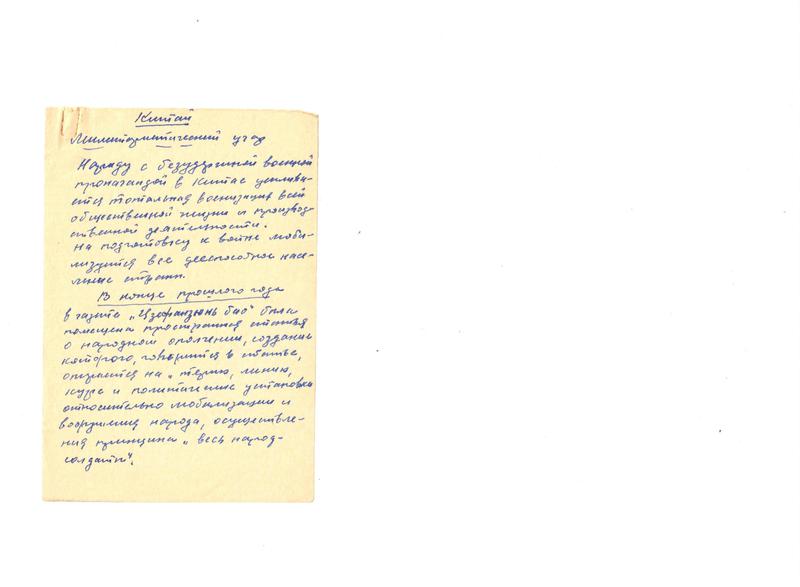 Китай
Милитаристический угар
Наряду с безудержной военной
пропагандой в Китае усилива-
ется тотальная военизация всей
общественной жизни и производ-
ственной деятельности.
На подготовку к войне моби-
лизуется все дееспособное насе-
ление страны.
В конце прошлого года
в газете „Цзефанзюнь бао" была
помещена пространная статья
о народном ополчении, создание
которого, говорится в статье,
опирается на „теорию, линию,
курс и политические установки
относительно мобилизации и
вооружения народа, осуществле-
ния принципа „весь народ-
солдаты".